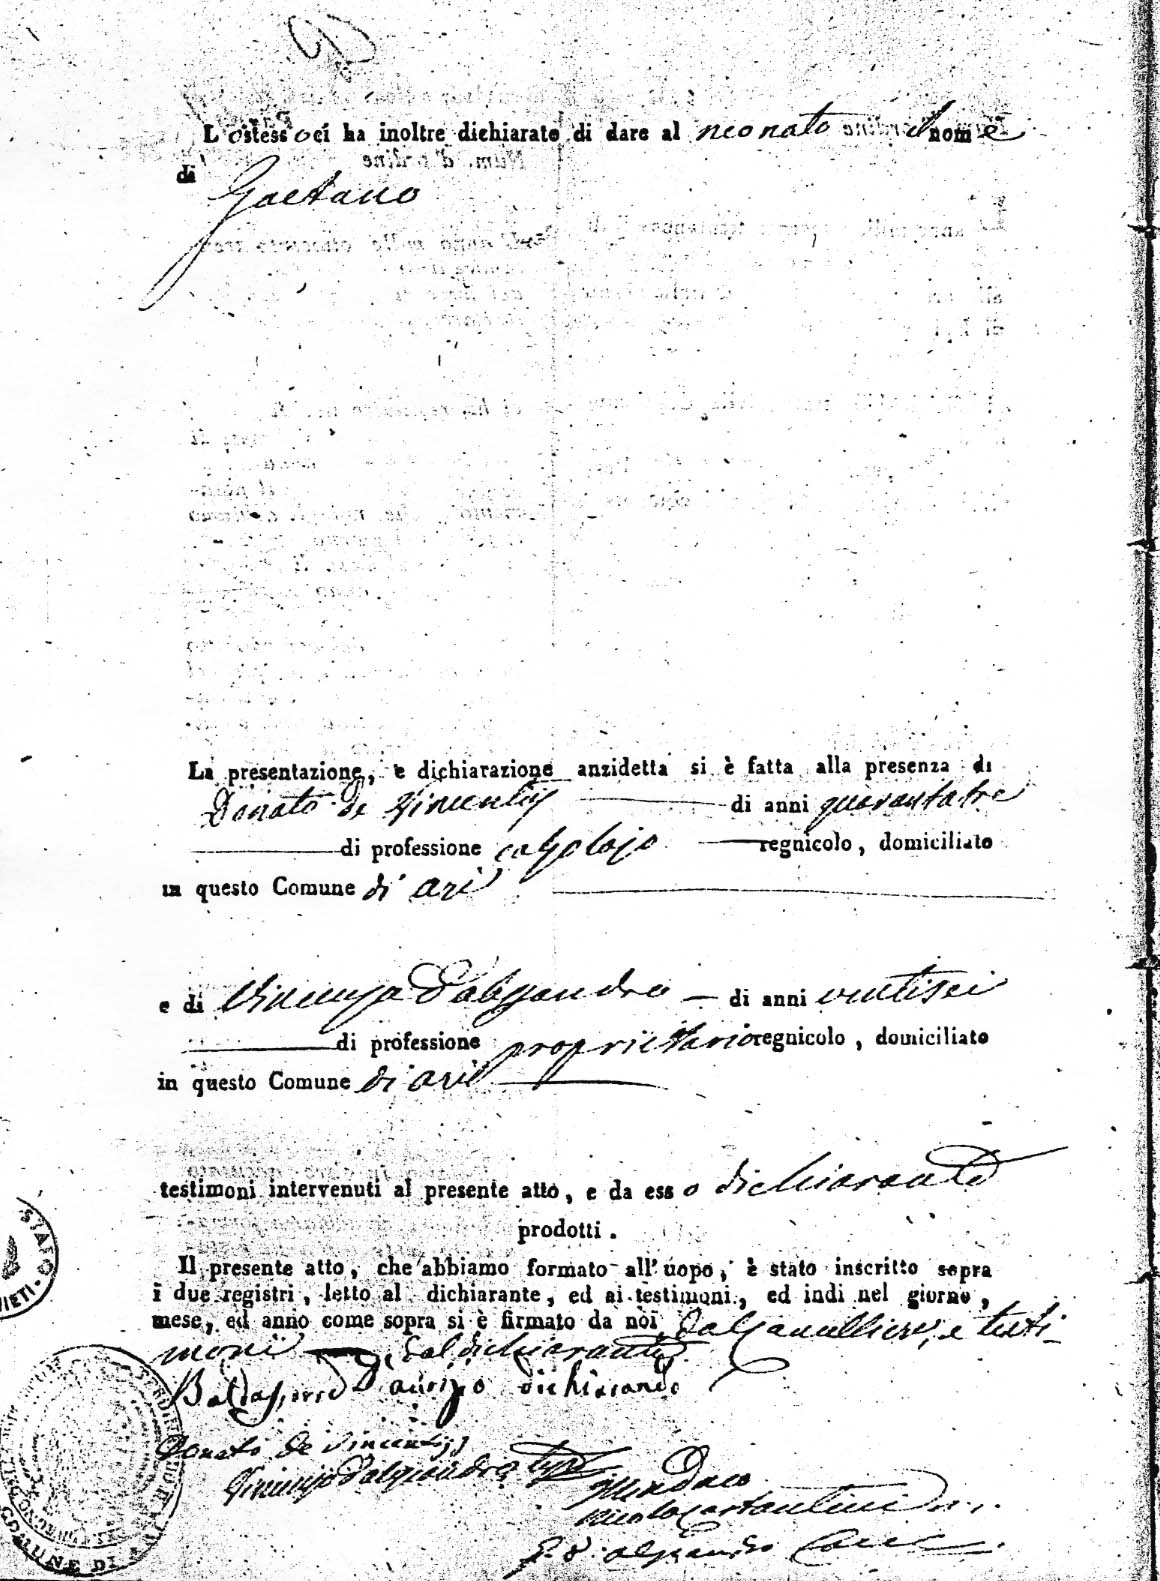 L'ostesso ci ha inoltre dichiarato di dare al neonato il nome
di Gaetano
La presentazione, e dichiarazione anzidetta si è fatta alla presenza di
Donato de Vincentiis di anni quarantatre
di professione calzolajo regnicolo, domiciliato
in questo Comune di Ari
e di Vincenzo d'Alessandro di anni ventisei
di professione proprietario regnicolo, domiciliato
in questo Comune di Ari
testimoni intervenuti al presente atto, e da esso dichiarante
prodotti.
Il presente atto, che abbiamo formato all'uopo, è stato inscritto sopra
i due registri, letto al dichiarante, ed ai testimoni, ed indi nel giorno,
mese, ed anno come sopra si è firmato da noi, dal Cancelliere, e testi-
moni dal dichiarante
Baldassarre D'aurizio dichiarante
Donato de Vincentiis
Vincenzo d'Alessandro
Il Sindaco
Nicola Costantini
d'Alessandro Canc
STATO
CHIETI
COMUNE DI